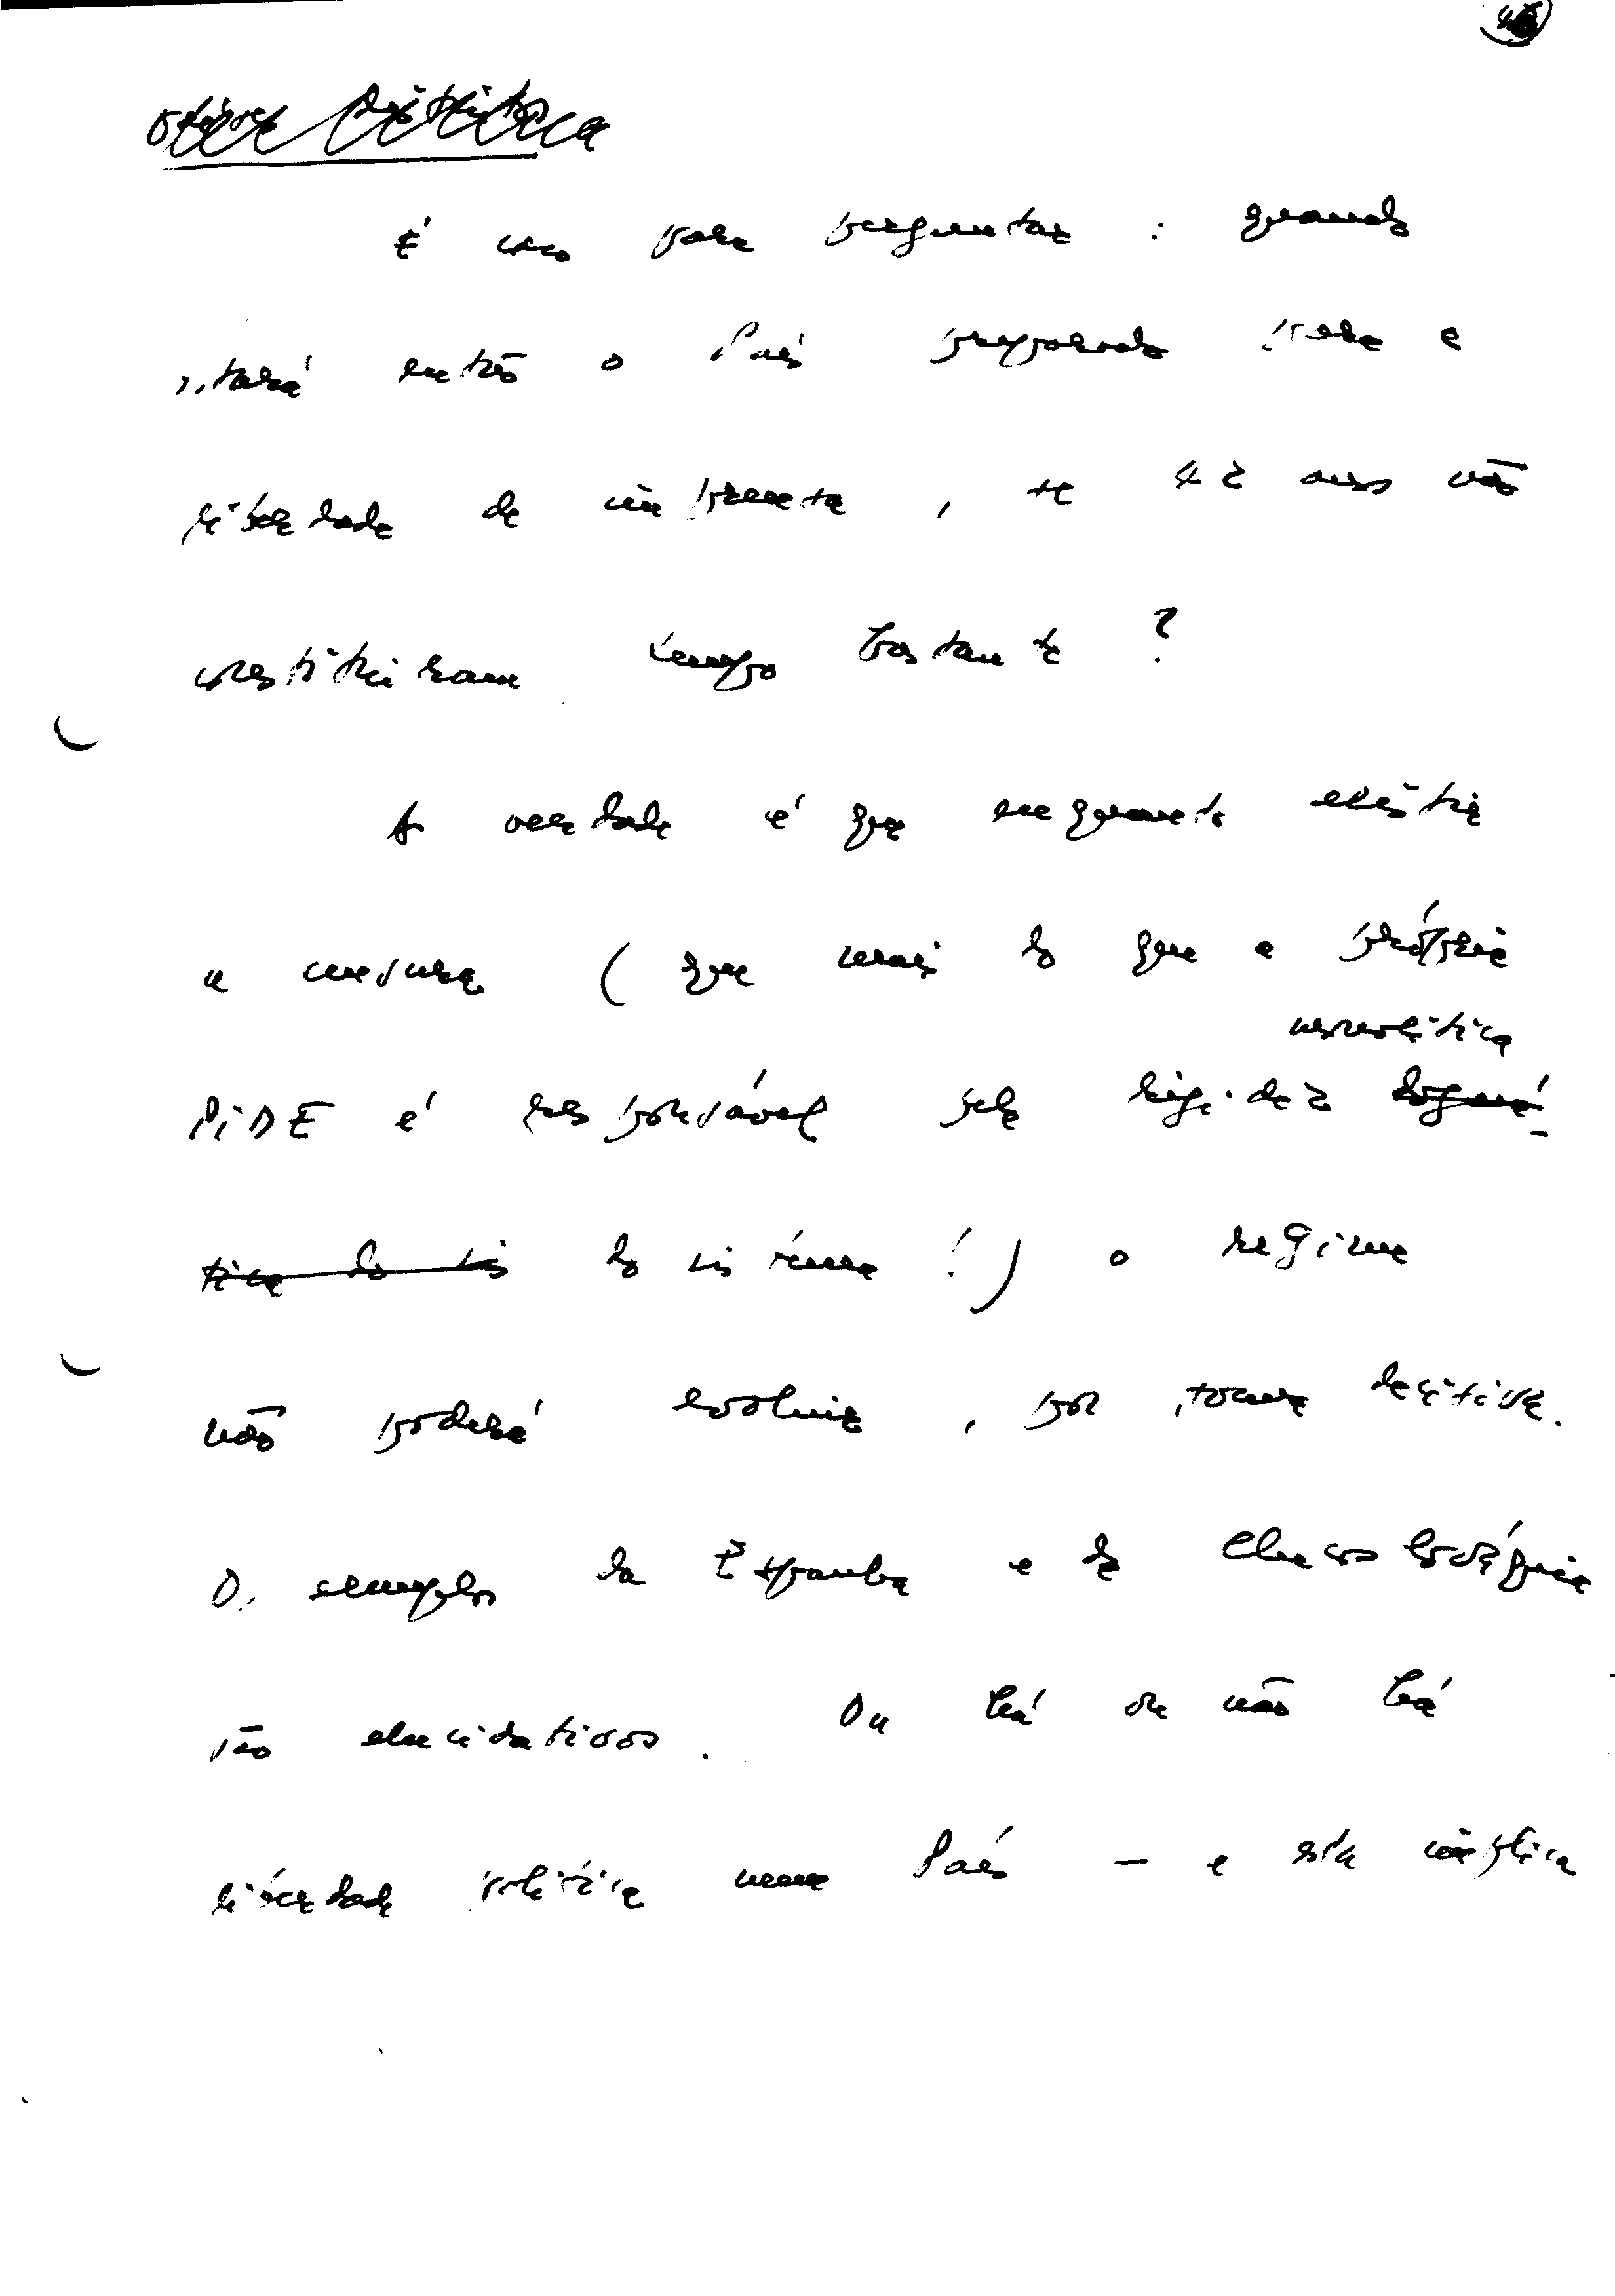 É caso para perguntar : quando
estará então o País preparado para a
liberdade de imprensa , se 42 anos não
constituiram tempo bastante ?
A verdade é que enquanto existir
a censura ( que mais do que a própria
monolítica
PIDE é responsável pela rigidez dogmá-
tica do sis do sistema !) o regime
não poderá evoluir , por forma decisiva.
Os exemplos da Espanha e da Checoslováquia
são elucidativos . Ou há ou não há
liberdade política num País — e esta implica